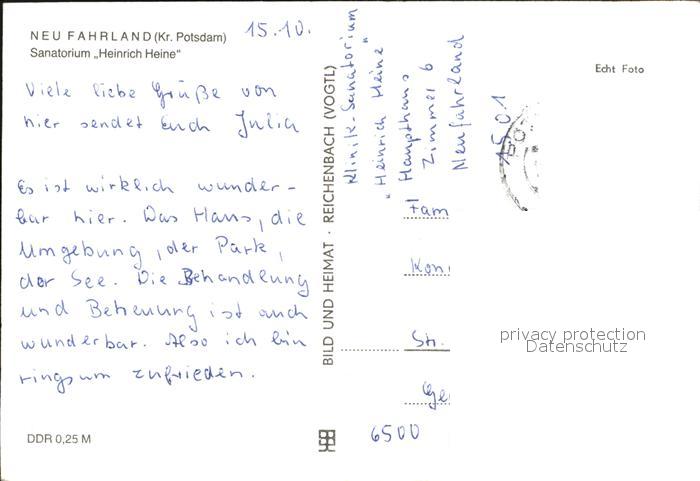 NEU FAHRLAND (Kr. Potsdam)
Sanatorium „Heinrich Heine"
15.10.
Viele liebe Grüße von
hier sendet Euch Julia
Es ist wirklich wunder-
bar hier. Das Haus, die
Umgebung, der Park,
der See. Die Behandlung
und Betreuung ist auch
wunderbar. Also ich bin
ringsum zufrieden.
DDR 0,25 M
BILD UND HEIMAT · REICHENBACH (VOGTL)
Klinik-Sanatorium
"Heinrich Heine"
Haupthaus
Zimmer 6
Neufahrland
1501
Echt Foto
Fam
Kon
Str.
Ge
6500
privacy protection
Datenschutz